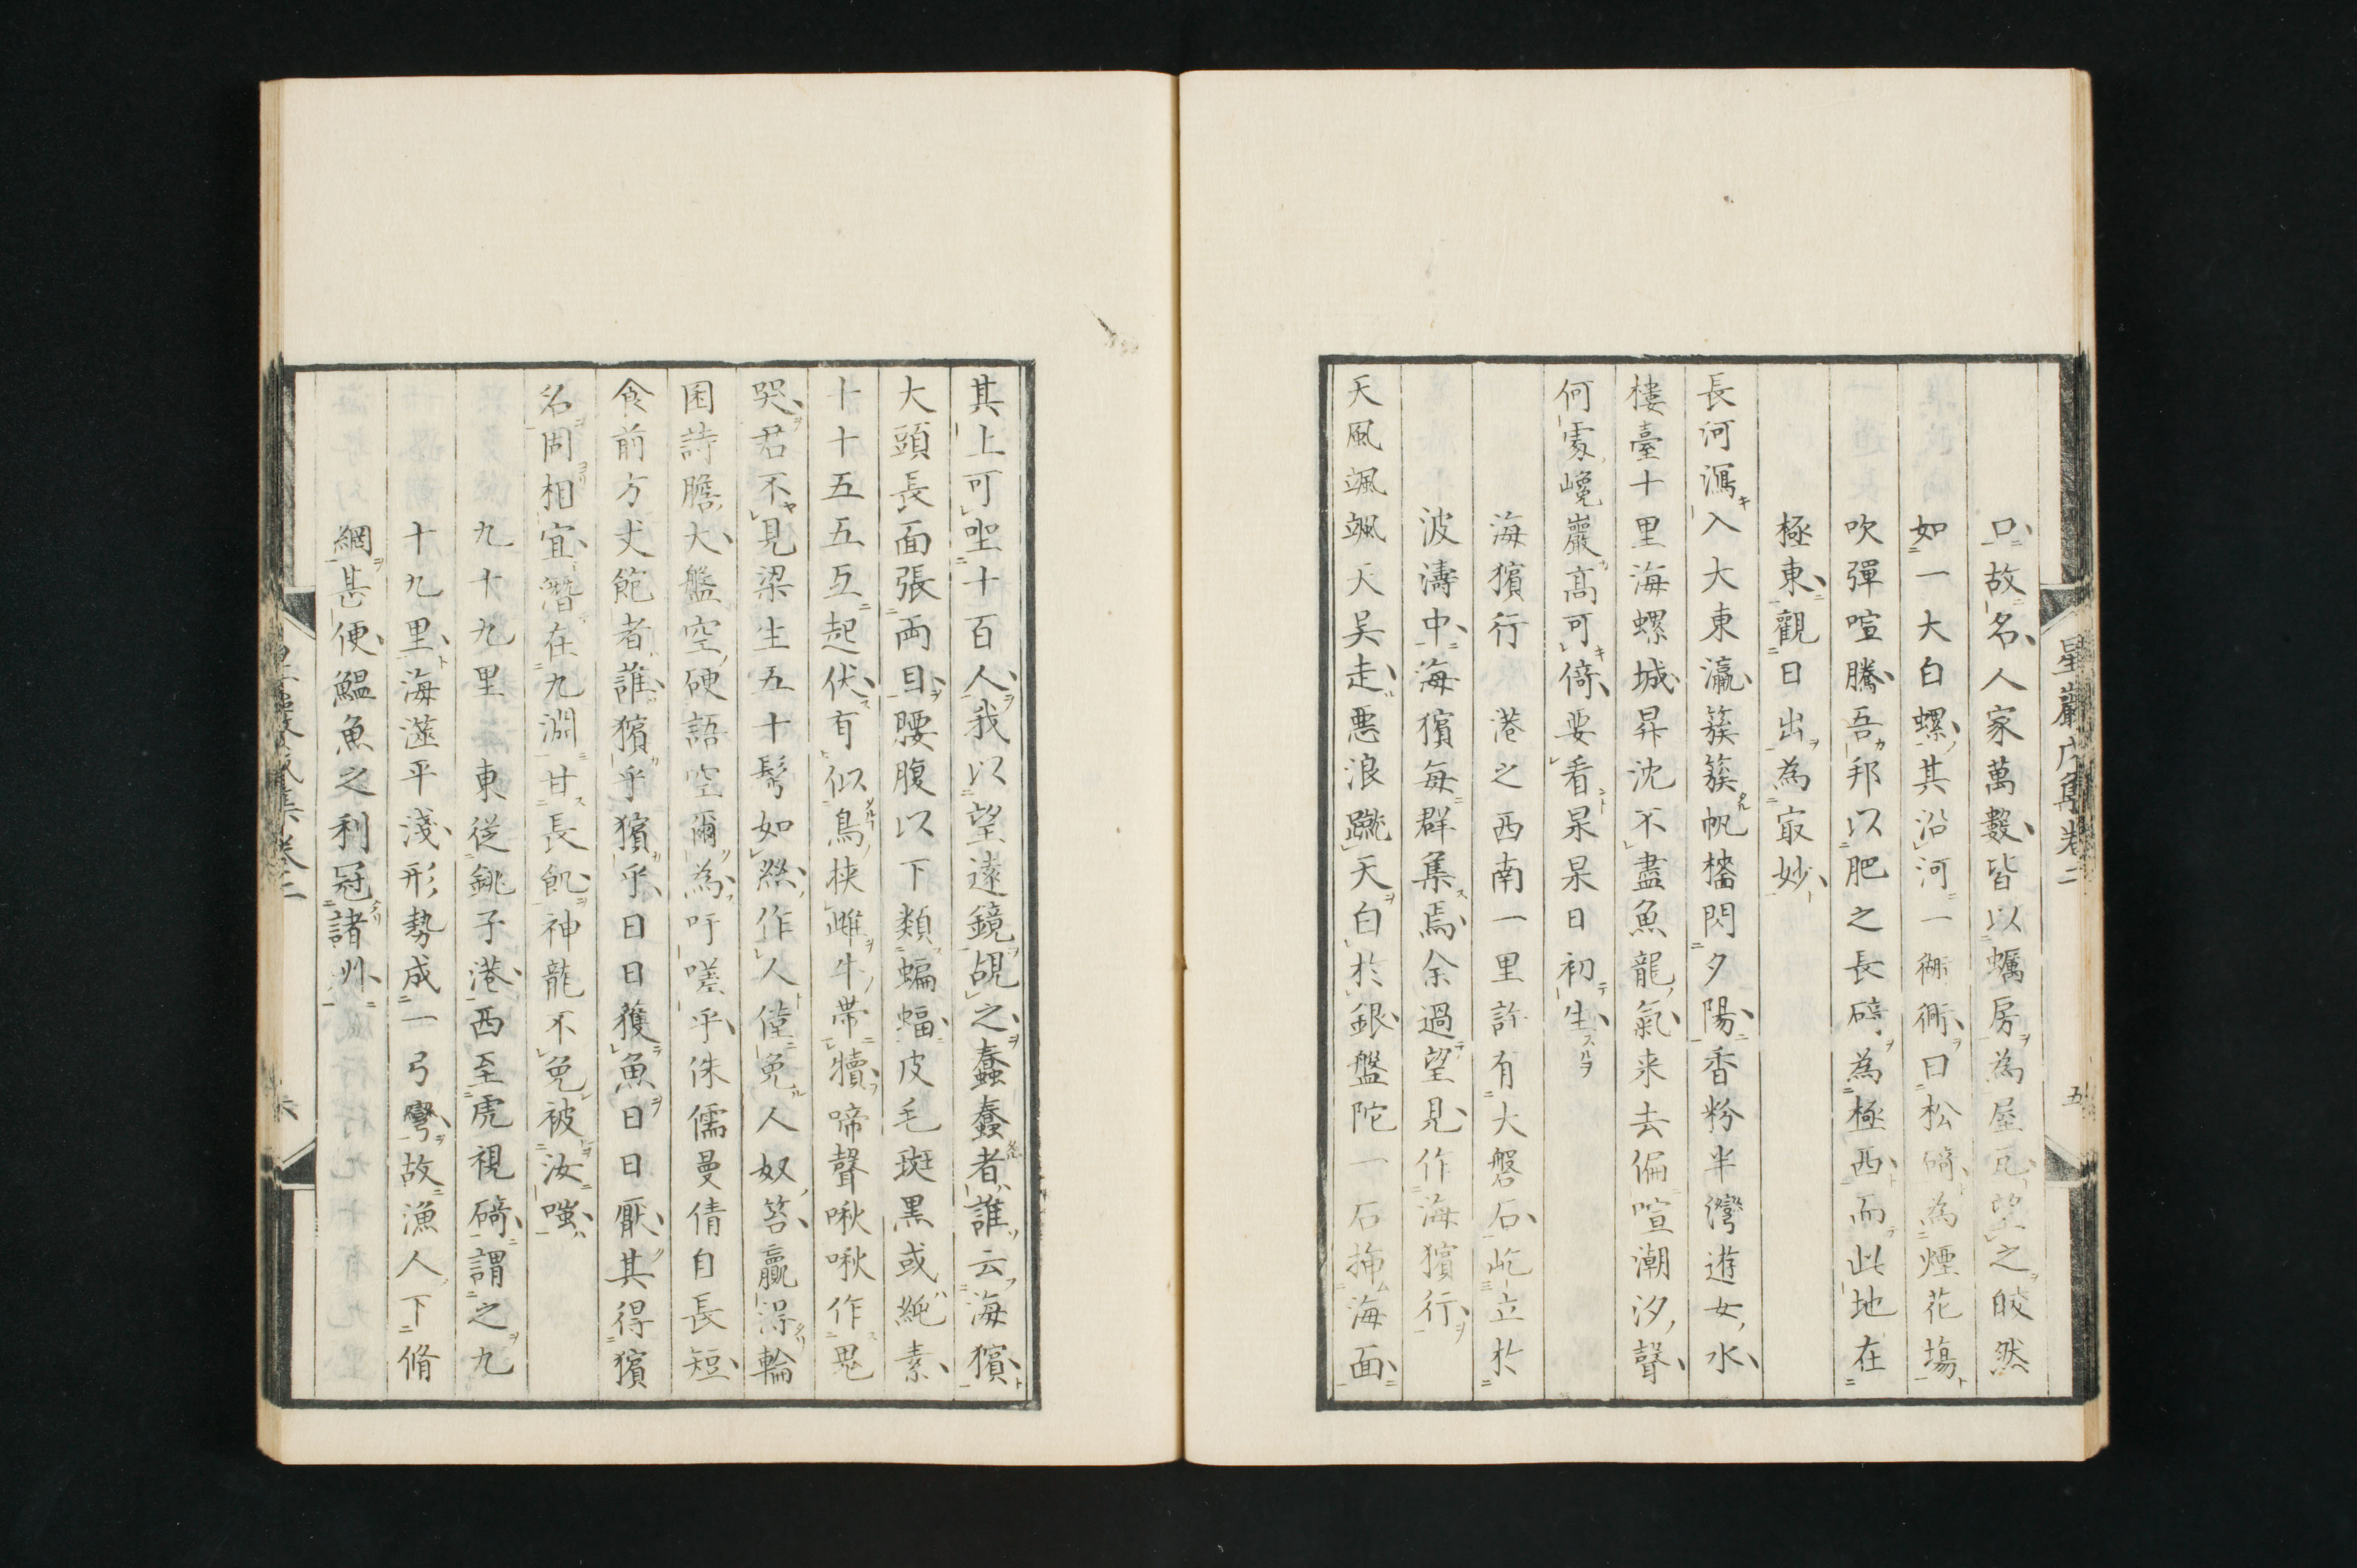 星巖戊集卷二
五
口故名人家萬數皆以蠣房為屋瓦望之皎然
如一大白螺其沿河一衚衕曰松碕為煙花場
吹彈喧騰吾邦以肥之長碕為極西而此地在
極東觀日出為寂妙
長河瀉入大東瀛簇簇帆檣閃夕陽香粉半灣遊女水
樓臺十里海螺城昇沈不盡魚龍氣来去偏喧潮汐聲
何處巉巖高可倚要看杲杲日初生
海獱行　港之西南一里許有大磐石屹立於
波濤中海獱每群集焉余過望見作海獱行
天風颯颯天吴走惡浪蹴天白於銀盤陀一石揷海面
其上可坐十百人我以望遠鏡覘之蠢蠢者誰云海獱
大頭長面張両目腰腹以下類蝙蝠皮毛斑黒或純素
十十五五互起伏有似鳥挟雌牛帯犢啼聲啾啾作鬼
哭君不見梁生五十鬂如絲作人僅免人奴笞贏得輪
囷詩膽大盤空硬語空爾為吁嗟乎侏儒曼倩自長短
食前方丈飽者誰獱乎獱乎日日獲魚日日厭其得獱
名固相宜潛在九淵甘長飢神龍不免被汝嗤
九十九里　東従銚子港西至虎視碕謂之九
十九里海濵平淺形勢成一弓彎故漁人下脩
網甚便鰮魚之利冠諸州
六